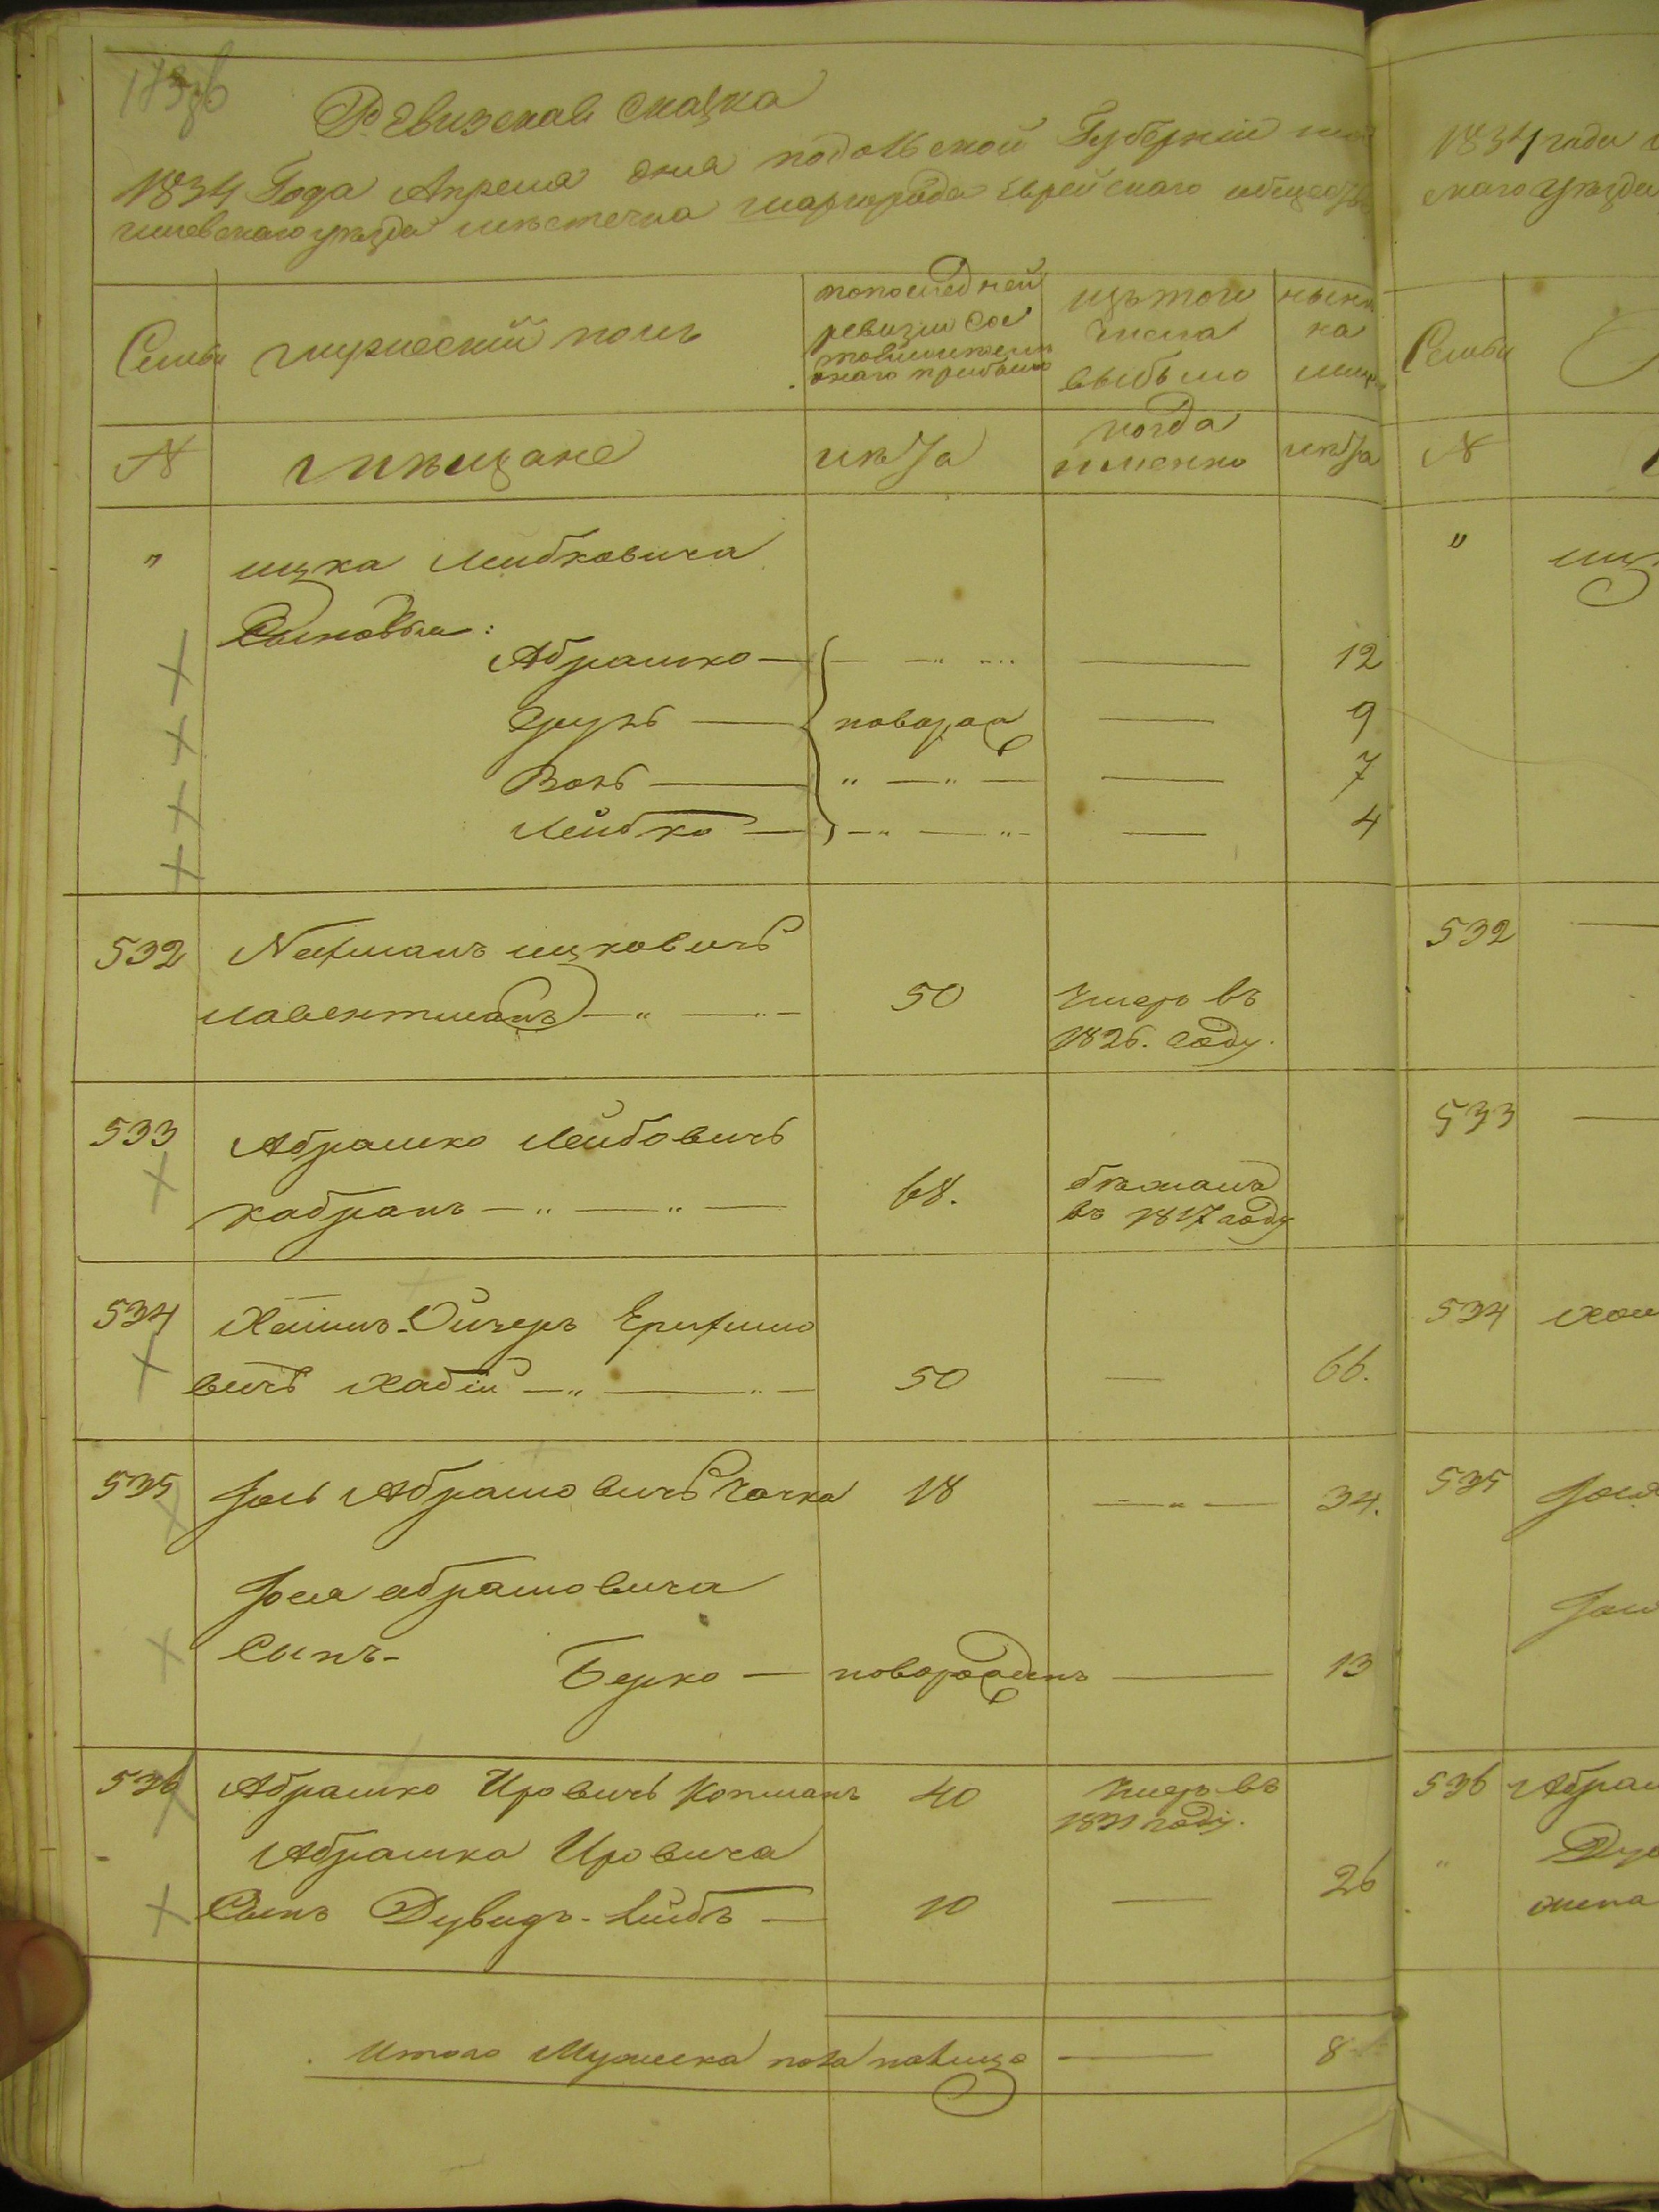 Ревизская Сказка
1834 Года Апреля дня подольской Губерніи
уезда местечка шаргорода Еврейского общества
Семьи мужескій полъ
попоследней ревизіи состояло
изъ того числа выбыло
ныне на лицо
N мещане лета когда именно лета
" ицка Лейбковича
Сыновья:
Абрашко — — 12
Сруль — новорож — 9
Волъ — " — " — — 7
Лейбко — — 4
532 Нафманъ ицковичъ
50 Умеръ въ
1826. году.
533 Абрашко Лейбовичъ
кабранъ — " — " — 68. бежалъ
въ 1817 году
534 Хаимъ-Ойзеръ
вичъ Хабій — " — 50 — 66.
535 Іоль Абрамовичъ Чачка 18 — " — 34.
Іоля абрамовича
Сынъ-
Берко — новорожденъ — 13
536 Абрашко Ировичъ Копманъ 40 Умеръ въ
1831 году.
Абрашка Ировича
Сынъ Дувидъ-Лейбъ — 10 — 26
Итого Мужеска пола налицо — 8
1834 года
ского уезда
Семьи
N
"
532
533
534
535
536
жена